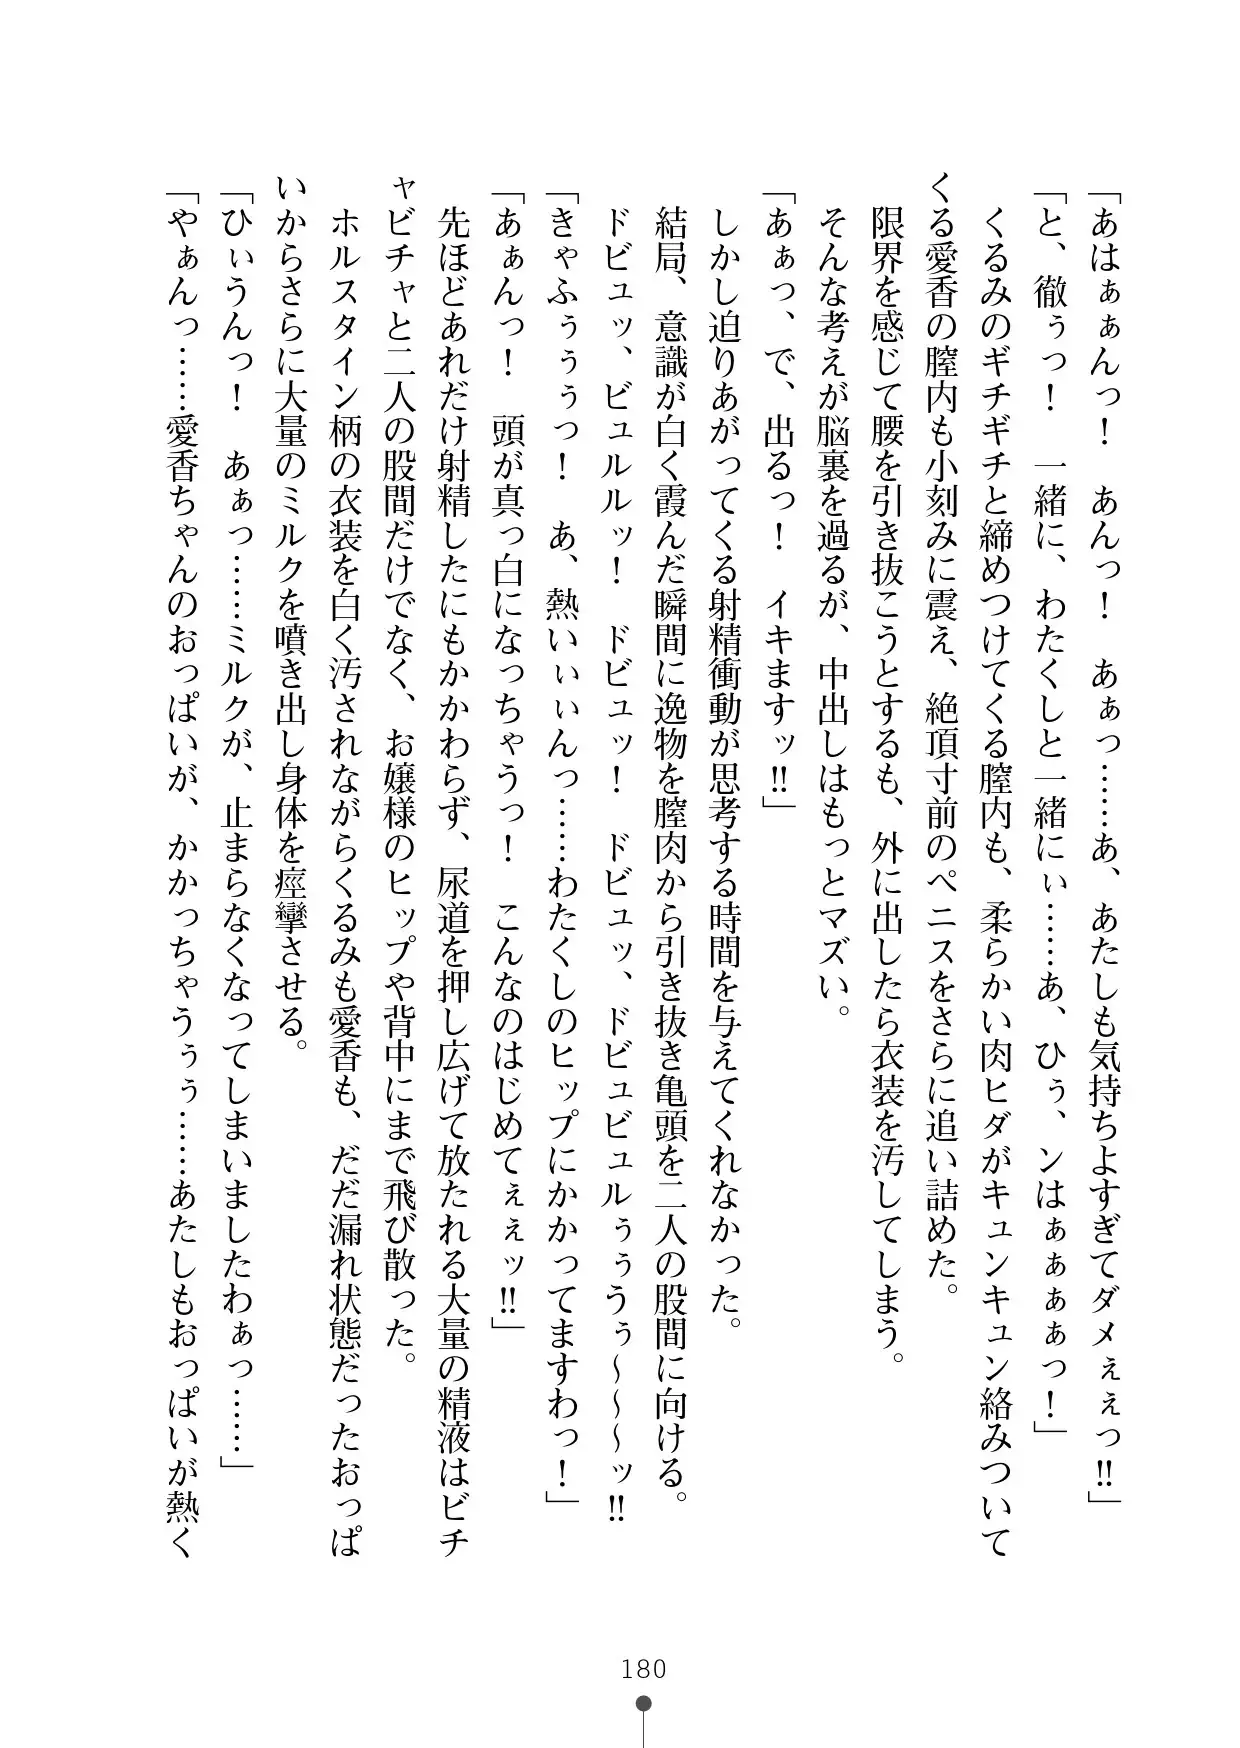 「あはぁぁんっ！　あんっ！　あぁっ……あ、あたしも気持ちよすぎてダメぇぇっ‼」
「と、徹ぅっ！　一緒に、わたくしと一緒にぃ……あ、ひぅ、ンはぁぁぁぁっ！」
　くるみのギチギチと締めつけてくる膣内も、柔らかい肉ヒダがキュンキュン絡みついて
くる愛香の膣内も小刻みに震え、絶頂寸前のペニスをさらに追い詰めた。
　限界を感じて腰を引き抜こうとするも、外に出したら衣装を汚してしまう。
　そんな考えが脳裏を過るが、中出しはもっとマズい。
「あぁっ、で、出るっ！　イキますッ‼」
　しかし迫りあがってくる射精衝動が思考する時間を与えてくれなかった。
　結局、意識が白く霞んだ瞬間に逸物を膣肉から引き抜き亀頭を二人の股間に向ける。
　ドビュッ、ビュルルッ！　ドビュッ！　ドビュッ、ドビュビュルぅぅうぅ～～～ッ‼
「きゃふぅぅぅっ！　あ、熱いぃぃぃんっ……わたくしのヒップにかかってますわっ！」
「あぁんっ！　頭が真っ白になっちゃうっ！　こんなのはじめてぇぇッ‼」
　先ほどあれだけ射精したにもかかわらず、尿道を押し広げて放たれる大量の精液はビチ
ャビチャと二人の股間だけでなく、お嬢様のヒップや背中にまで飛び散った。
　ホルスタイン柄の衣装を白く汚されながらくるみも愛香も、だだ漏れ状態だったおっぱ
いからさらに大量のミルクを噴き出し身体を痙攣させる。
「ひぃうんっ！　あぁっ……ミルクが、止まらなくなってしまいましたわぁっ……」
「やぁんっ……愛香ちゃんのおっぱいが、かかっちゃうぅぅ……あたしもおっぱいが熱く
180